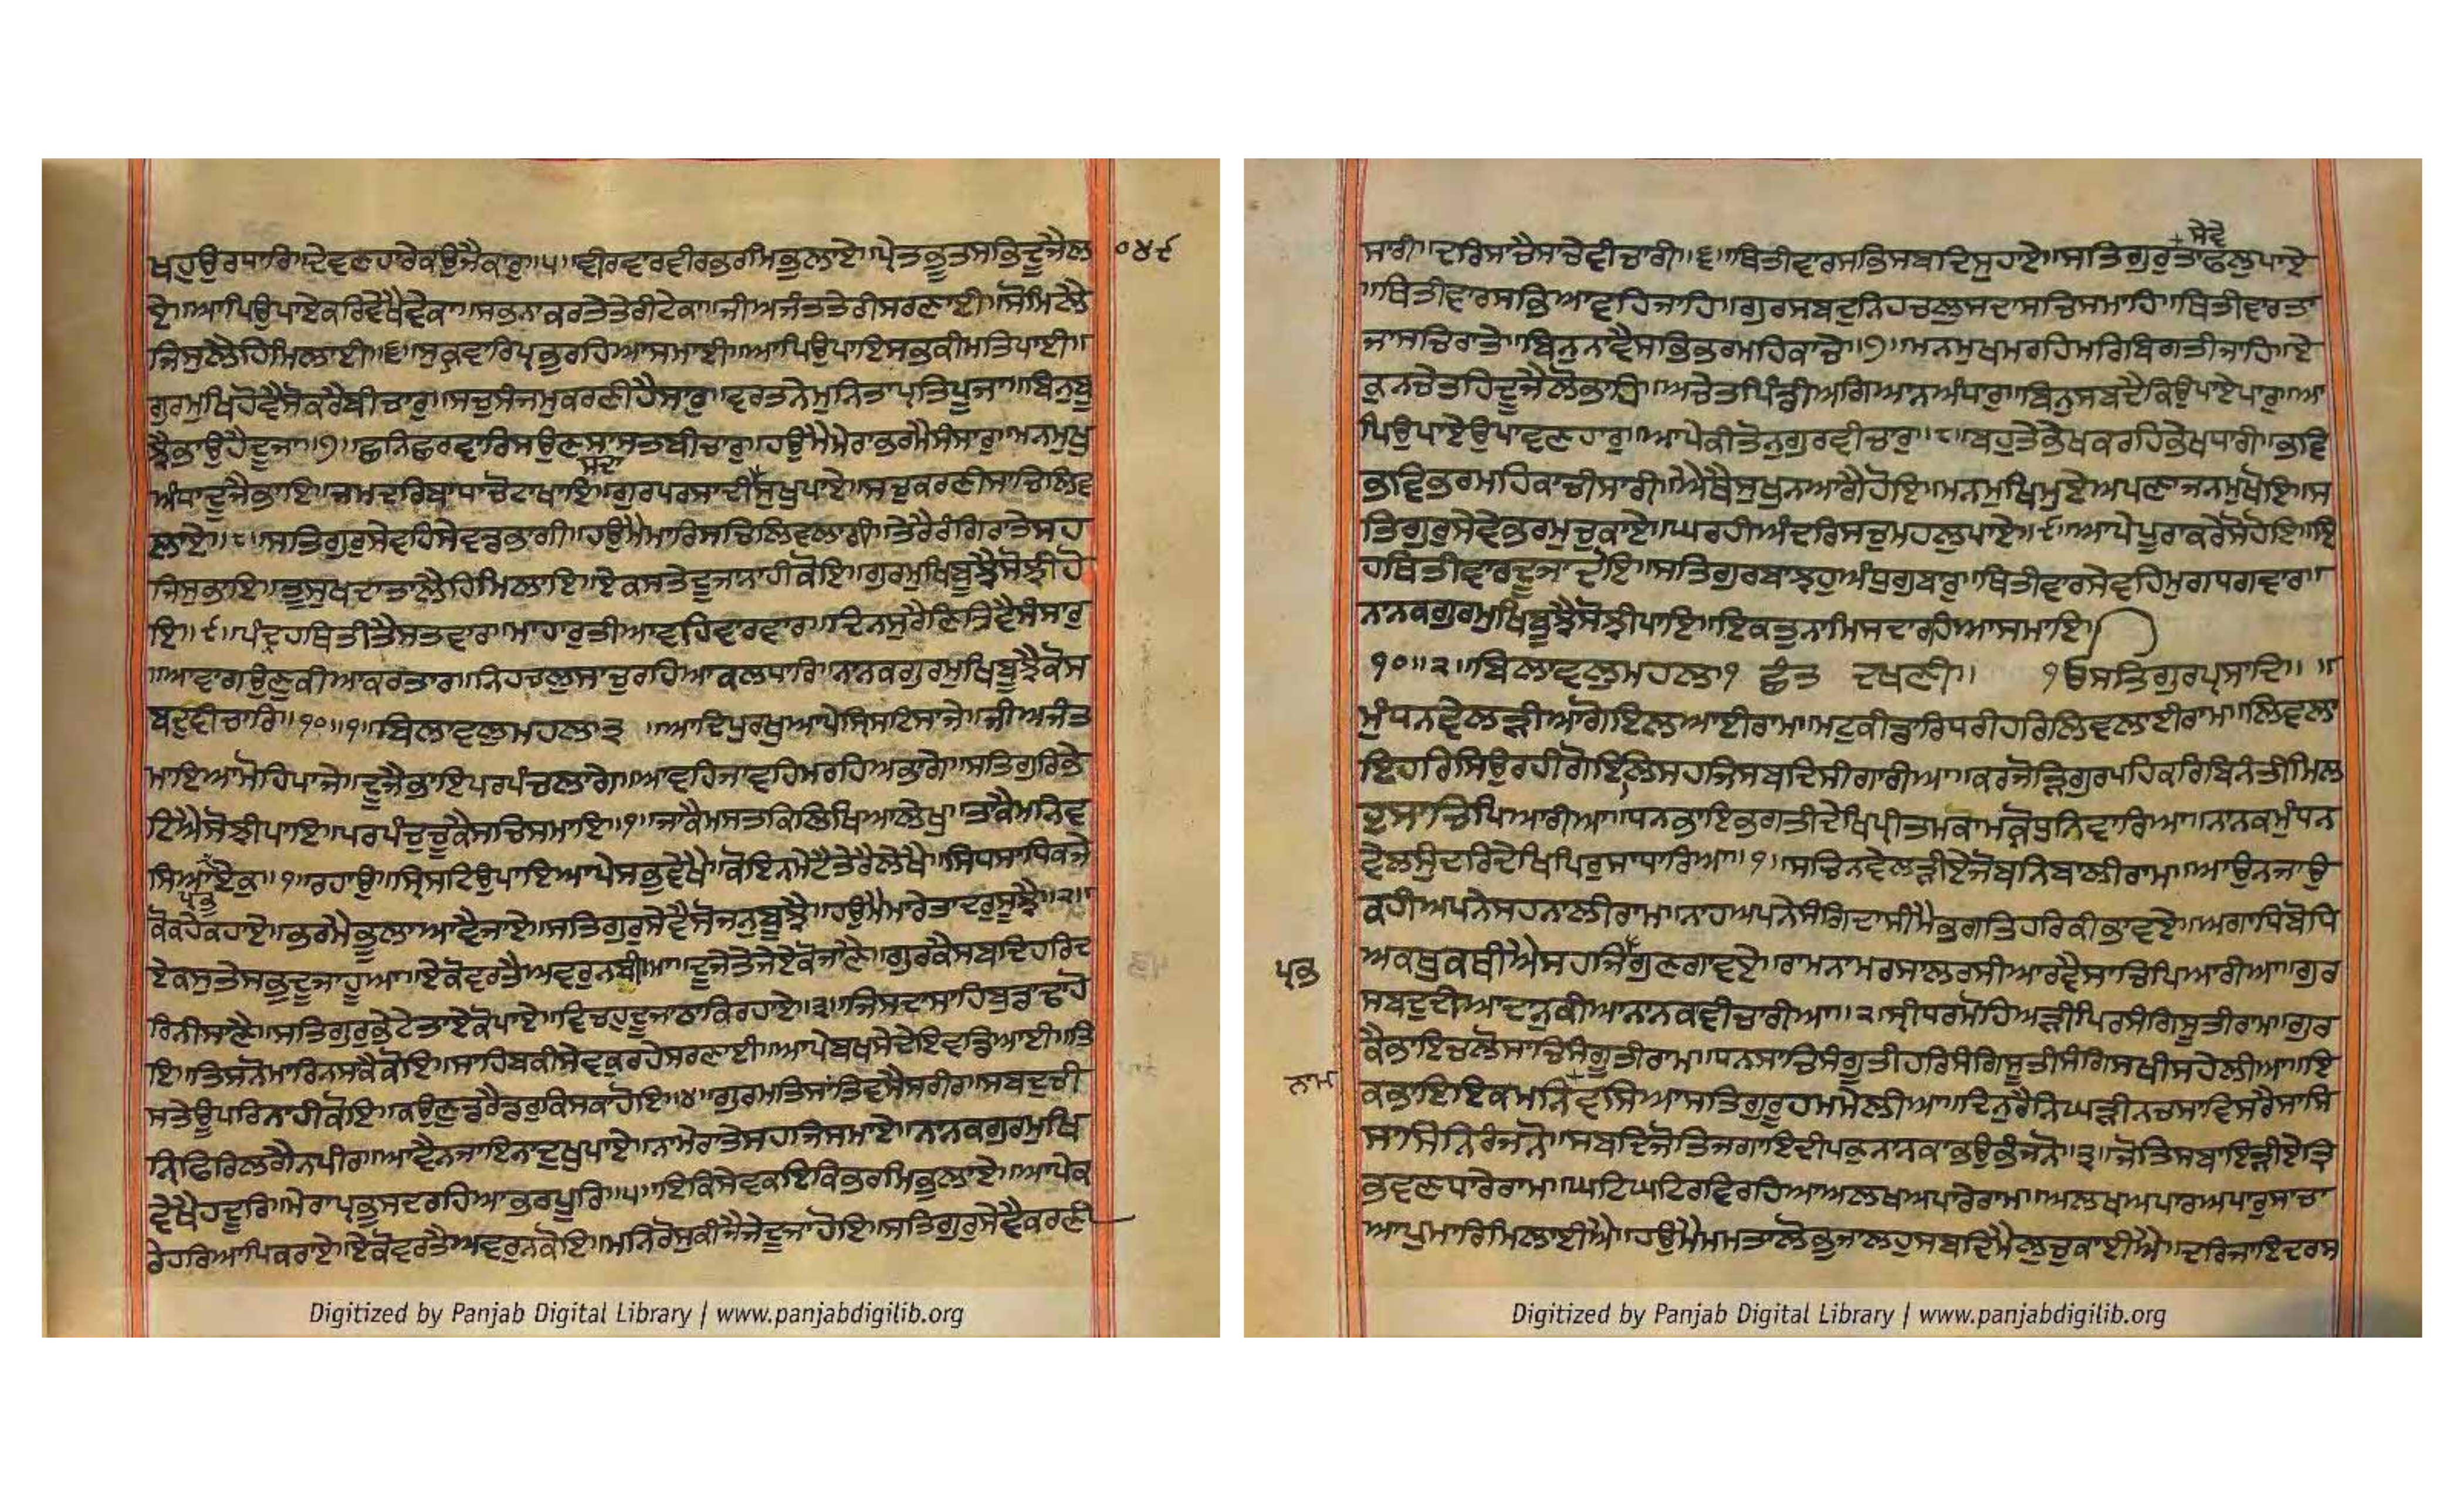 ਖਹੁਉਰਧਾਰਿ॥ਦੇਵਣਹਾਰੇਕਉਜੈਕਾਰੁ॥੫॥ਵੀਰਵਾਰਵੀਰਭਰਮਿਭੁਲਾਏ॥ਪ੍ਰੇਤਭੂਤਸਭਿਦੂਜੈਲਾ
੦੪੯
ਏ॥ਆਪਿਉਪਾਏਕਰਿਵੇਖੈਵੇਕਾ॥ਸਭਨਾਕਰਤੇਤੇਰੀਟੇਕਾ॥ਜੀਅਜੰਤਤੇਰੀਸਰਣਾਈ॥ਸੋਮਿਲੈ
ਜਿਸੁਲੈਹਿਮਿਲਾਈ॥੬॥ਸੁਕ੍ਰਵਾਰਿਪ੍ਰਭੁਰਹਿਆਸਮਾਈ॥ਆਪਿਉਪਾਇਸਭਕੀਮਤਿਪਾਈ॥
ਗੁਰਮੁਖਿਹੋਵੈਸੋਕਰੈਬੀਚਾਰੁ॥ਸਚੁਸੰਜਮੁਕਰਣੀਹੈਸਾਰੁ॥ਵਰਤਨੇਮੁਨਿਤਾਪ੍ਰਤਿਪੂਜਾ॥ਬਿਨੁਬੂ
ਝੈਭਾਉਹੈਦੂਜਾ॥੭॥ਛਨਿਛਰਵਾਰਿਸਉਣਸਾਸਤਬੀਚਾਰੁ॥ਹਉਮੈਮੇਰਾਭਰਮੈਸੰਸਾਰੁ॥ਮਨਮੁਖੁ
ਸਦਾ
ਅੰਧਾਦੂਜੈਭਾਇ॥ਜਮਦਰਿਬਾਧਾਚੋਟਾਖਾਇ॥ਗੁਰਪਰਸਾਦੀਸੁਖੁਪਾਏ॥ਸਚੁਕਰਣੀਸਾਚਿਲਿਵ
ਲਾਏ॥੮॥ਸਤਿਗੁਰੁਸੇਵਹਿਸੇਵਡਭਾਗੀ॥ਹਉਮੈਮਾਰਿਸਚਿਲਿਵਲਾਗੀ॥ਤੇਰੈਰੰਗਿਰਾਤੇਸਹ
ਜਿਸੁਭਾਇ॥ਤੂਸੁਖਦਾਤਾਲੈਹਿਮਿਲਾਇ॥ਏਕਸਤੇਦੂਜਾਨਾਹੀਕੋਇ॥ਗੁਰਮੁਖਿਬੂਝੈਸੋਝੀਹੋ
ਇ॥੯॥ਪੰਦ੍ਰਹਥਿਤੀਤੈਸਤਵਾਰ॥ਮਾਹਾਰੁਤੀਆਵਹਿਵਾਰਵਾਰ॥ਦਿਨਸੁਰੈਣਿਤਿਵੈਸੰਸਾਰੁ
॥ਆਵਾਗਉਣੁਕੀਆਕਰਤਾਰ॥ਨਿਹਚਲੁਸਾਚੁਰਹਿਆਕਲਧਾਰਿ॥ਨਾਨਕਗੁਰਮੁਖਿਬੂਝੈਕੋਸ
ਬਦੁਵੀਚਾਰਿ॥੧੦॥੧॥ਬਿਲਾਵਲੁਮਹਲਾ੩ ॥ਆਦਿਪੁਰਖੁਆਪੇਸ੍ਰਿਸਟਿਸਾਜੇ॥ਜੀਅਜੰਤ
ਮਾਇਆਮੋਹਿਪਾਜੇ॥ਦੂਜੈਭਾਇਪਰਪੰਚਲਾਗੇ॥ਆਵਹਿਜਾਵਹਿਮਰਹਿਅਭਾਗੇ॥ਸਤਿਗੁਰਿਭੇ
ਟਿਐਸੋਝੀਪਾਇ॥ਪਰਪੰਚੁਚੂਕੈਸਚਿਸਮਾਇ॥੧॥ਜਾਕੈਮਸਤਕਿਲਿਖਿਆਲੇਖੁ॥ਤਾਕੈਮਨਿਵ
ਪ੍ਰਭੁ
ਸਿਆਏਕੁ॥੧॥ਰਹਾਉ॥ਸ੍ਰਿਸਟਿਉਪਾਇਆਪੇਸਭੁਵੇਖੈ॥ਕੋਇਨਮੇਟੈਤੇਰੈਲੇਖੈ॥ਸਿਧਸਾਧਿਕਜੇ
ਕੋਕਹੇਕਹਾਏ॥ਭਰਮੇਭੂਲਾਆਵੈਜਾਏ॥ਸਤਿਗੁਰੁਸੇਵੈਸੋਜਨੁਬੂਝੈ॥ਹਉਮੈਮਾਰੇਤਾਦਰੁਸੂਝੈ॥੨॥
ਏਕਸੁਤੇਸਭੁਦੂਜਾਹੂਆ॥ਏਕੋਵਰਤੈਅਵਰੁਨਬੀਆ॥ਦੂਜੇਤੇਜੇਏਕੋਜਾਣੈ॥ਗੁਰਕੈਸਬਦਿਹਰਿਦ
ਰਿਨੀਸਾਣੈ॥ਸਤਿਗੁਰੁਭੇਟੇਤਾਏਕੋਪਾਏ॥ਵਿਚਹੁਦੂਜਾਠਾਕਿਰਹਾਏ॥੩॥ਜਿਸਦਾਸਾਹਿਬੁਡਾਢਾਹੋ
ਇ॥ਤਿਸਨੋਮਾਰਿਨਸਕੈਕੋਇ॥ਸਾਹਿਬਕੀਸੇਵਕੁਰਹੇਸਰਣਾਈ॥ਆਪੇਬਖਸੇਦੇਇਵਡਿਆਈ॥ਤਿ
ਸਤੇਊਪਰਿਨਾਹੀਕੋਇ॥ਕਉਣੁਡਰੈਡਰੁਕਿਸਕਾਹੋਇ॥੪॥ਗੁਰਮਤਿਸਾਂਤਿਵਸੈਸਰੀਰ॥ਸਬਦੁਚੀ
ਨਿੑਫਿਰਿਲਗੈਨਪੀਰ॥ਆਵੈਨਜਾਇਨਾਦੁਖੁਪਾਏ॥ਨਾਮੇਰਾਤੇਸਹਜਿਸਮਾਏ॥ਨਾਨਕਗੁਰਮੁਖਿ
ਵੇਖੈਹਦੂਰਿ॥ਮੇਰਾਪ੍ਰਭੁਸਦਰਹਿਆਭਰਪੂਰਿ॥੫॥ਇਕਿਸੇਵਕਇਕਿਭਰਮਿਭੁਲਾਏ॥ਆਪੇਕ
ਰੇਹਰਿਆਪਿਕਰਾਏ॥ਏਕੋਵਰਤੈਅਵਰੁਨਕੋਇ॥ਮਨਿਰੋਸੁਕੀਜੈਜੇਦੂਜਾਹੋਇ॥ਸਤਿਗੁਰੁਸੇਵੈਕਰਣੀ
Digitized by Panjab Digital Library | www.panjabdigilib.org
ਸੇਵੇ
ਸਾਰੀ॥ਦਰਿਸਾਚੈਸਾਚੇਵੀਚਾਰੀ॥੬॥ਥਿਤੀਵਾਰਸਭਿਸਬਦਿਸੁਹਾਏ॥ਸਤਿਗੁਰੁਤਾਫਲੁਪਾਏ
॥ਥਿਤੀਵਾਰਸਭਿਆਵਹਿਜਾਹਿ॥ਗੁਰਸਬਦੁਨਿਹਚਲੁਸਦਾਸਚਿਸਮਾਹਿ॥ਥਿਤੀਵਾਰਤਾ
ਜਾਸਚਿਰਾਤੇ॥ਬਿਨੁਨਾਵੈਸਭਿਭਰਮਹਿਕਾਚੇ॥੭॥ਮਨਮੁਖਮਰਹਿਮਰਿਬਿਗਤੀਜਾਹਿ॥ਏ
ਕੁਨਚੇਤਹਿਦੂਜੈਲੋਭਾਹਿ॥ਅਚੇਤਪਿੰਡੀਅਗਿਆਨਅੰਧਾਰੁ॥ਬਿਨੁਸਬਦੈਕਿਉਪਾਏਪਾਰੁ॥ਆ
ਪਿਉਪਾਏਉਪਾਵਣਹਾਰੁ॥ਆਪੇਕੀਤੋਨੁਗੁਰਵੀਚਾਰੁ॥੮॥ਬਹੁਤੇਭੇਖਕਰਹਿਭੇਖਧਾਰੀ॥ਭਵਿ
ਭਵਿਭਰਮਹਿਕਾਚੀਸਾਰੀ॥ਐਥੈਸੁਖੁਨਆਗੈਹੋਇ॥ਮਨਮੁਖਿਮੁਏਅਪਣਾਜਨਮੁਖੋਇ॥ਸ
ਤਿਗੁਰੁਸੇਵੇਭਰਮੁਚੁਕਾਏ॥ਘਰਹੀਅੰਦਰਿਸਚੁਮਹਲੁਪਾਏ॥੯॥ਆਪੇਪੂਰਾਕਰੇਸੋਹੋਇ॥ਇ
ਹਥਿਤੀਵਾਰਦੂਜਾਦੋਇ॥ਸਤਿਗੁਰਬਾਝਹੁਅੰਧੁਗੁਬਾਰੁ॥ਥਿਤੀਵਾਰਸੇਵਹਿਮੁਗਧਗਵਾਰ॥
ਨਾਨਕਗੁਰਮੁਖਿਬੂਝੈਸੋਝੀਪਾਇ॥ਇਕਤੁਨਾਮਿਸਦਾਰਹਿਆਸਮਾਇ॥
੧੦॥੨॥ਬਿਲਾਵਲੁਮਹਲਾ੧ ਛੰਤ ਦਖਣੀ॥ ੴਸਤਿਗੁਰਪ੍ਰਸਾਦਿ॥ ॥
ਮੁੰਧਨਵੇਲੜੀਆਗੋਇਲਆਈਰਾਮ॥ਮਟੁਕੀਡਾਰਿਧਰੀਹਰਿਲਿਵਲਾਈਰਾਮ॥ਲਿਵਲਾ
ਇਹਰਿਸਿਉਰਹੀਗੋਇਲਿਸਹਜਿਸਬਦਿਸੀਗਾਰੀਆ॥ਕਰਜੋੜਿਗੁਰਪਹਿਕਰਿਬਿਨੰਤੀਮਿਲ
ਹੁਸਾਚਿਪਿਆਰੀਆ॥ਧਨਭਾਇਭਗਤੀਦੇਖਿਪ੍ਰੀਤਮਕਾਮਕ੍ਰੋਧੁਨਿਵਾਰਿਆ॥ਨਾਨਕਮੁੰਧਨ
ਵੇਲਸੁੰਦਰਿਦੇਖਿਪਿਰੁਸਾਧਾਰਿਆ॥੧॥ਸਚਿਨਵੇਲੜੀਏਜੋਬਨਿਬਾਲੀਰਾਮ॥ਆਉਨਜਾਉ
ਕਹੀਅਪਨੇਸਹਨਾਲੀਰਾਮ॥ਨਾਹਅਪਨੇਸੰਗਿਦਾਸੀਮੈਭਗਤਿਹਰਿਕੀਭਾਵਏ॥ਅਗਾਧਿਬੋਧਿ
ਪ੍ਰਭ
ਅਕਥੁਕਥੀਐਸਹਜਿਗੁਣਗਾਵਏ॥ਰਾਮਨਾਮਰਸਾਲਰਸੀਆਰਵੈਸਾਚਿਪਿਆਰੀਆ॥ਗੁਰ
ਸਬਦੁਦੀਆਦਾਨੁਕੀਆਨਾਨਕਵੀਚਾਰੀਆ॥੨॥ਸ੍ਰੀਧਰਮੋਹਿਅੜੀਪਿਰਸੰਗਿਸੂਤੀਰਾਮ॥ਗੁਰ
ਕੈਭਾਇਚਲੋਸਾਚਿਸੰਗੂਤੀਰਾਮ॥ਧਨਸਾਚਿਸੰਗੂਤੀਹਰਿਸੰਗਿਸੂਤੀਸੰਗਿਸਖੀਸਹੇਲੀਆ॥ਇ
ਨਾਮ
ਕਭਾਇਇਕਮਨਿਵਸਿਆਸਤਿਗੁਰੂਹਮਮੇਲੀਆ॥ਦਿਨੁਰੈਨਿਘੜੀਨਚਸਾਵਿਸਰੈਸਾਸਿ
ਸਾਸਿਨਿਰੰਜਨੋ॥ਸਬਦਿਜੋਤਿਜਗਾਇਦੀਪਕੁਨਾਨਕਾਭਉਭੰਜਨੋ॥੩॥ਜੋਤਿਸਬਾਇੜੀਏਤ੍ਰਿ
ਭਵਣਧਾਰੇਰਾਮ॥ਘਟਿਘਟਿਰਵਿਰਹਿਆਅਲਖਅਪਾਰੇਰਾਮ॥ਅਲਖਅਪਾਰਅਪਾਰੁਸਾਚਾ
ਆਪੁਮਾਰਿਮਿਲਾਈਐ॥ਹਉਮੈਮਮਤਾਲੋਭੁਜਾਲਹੁਸਬਦਿਮੈਲੁਚੁਕਾਈਐ॥ਦਰਿਜਾਇਦਰਸ
Digitized by Panjab Digital Library | www.panjabdigilib.org